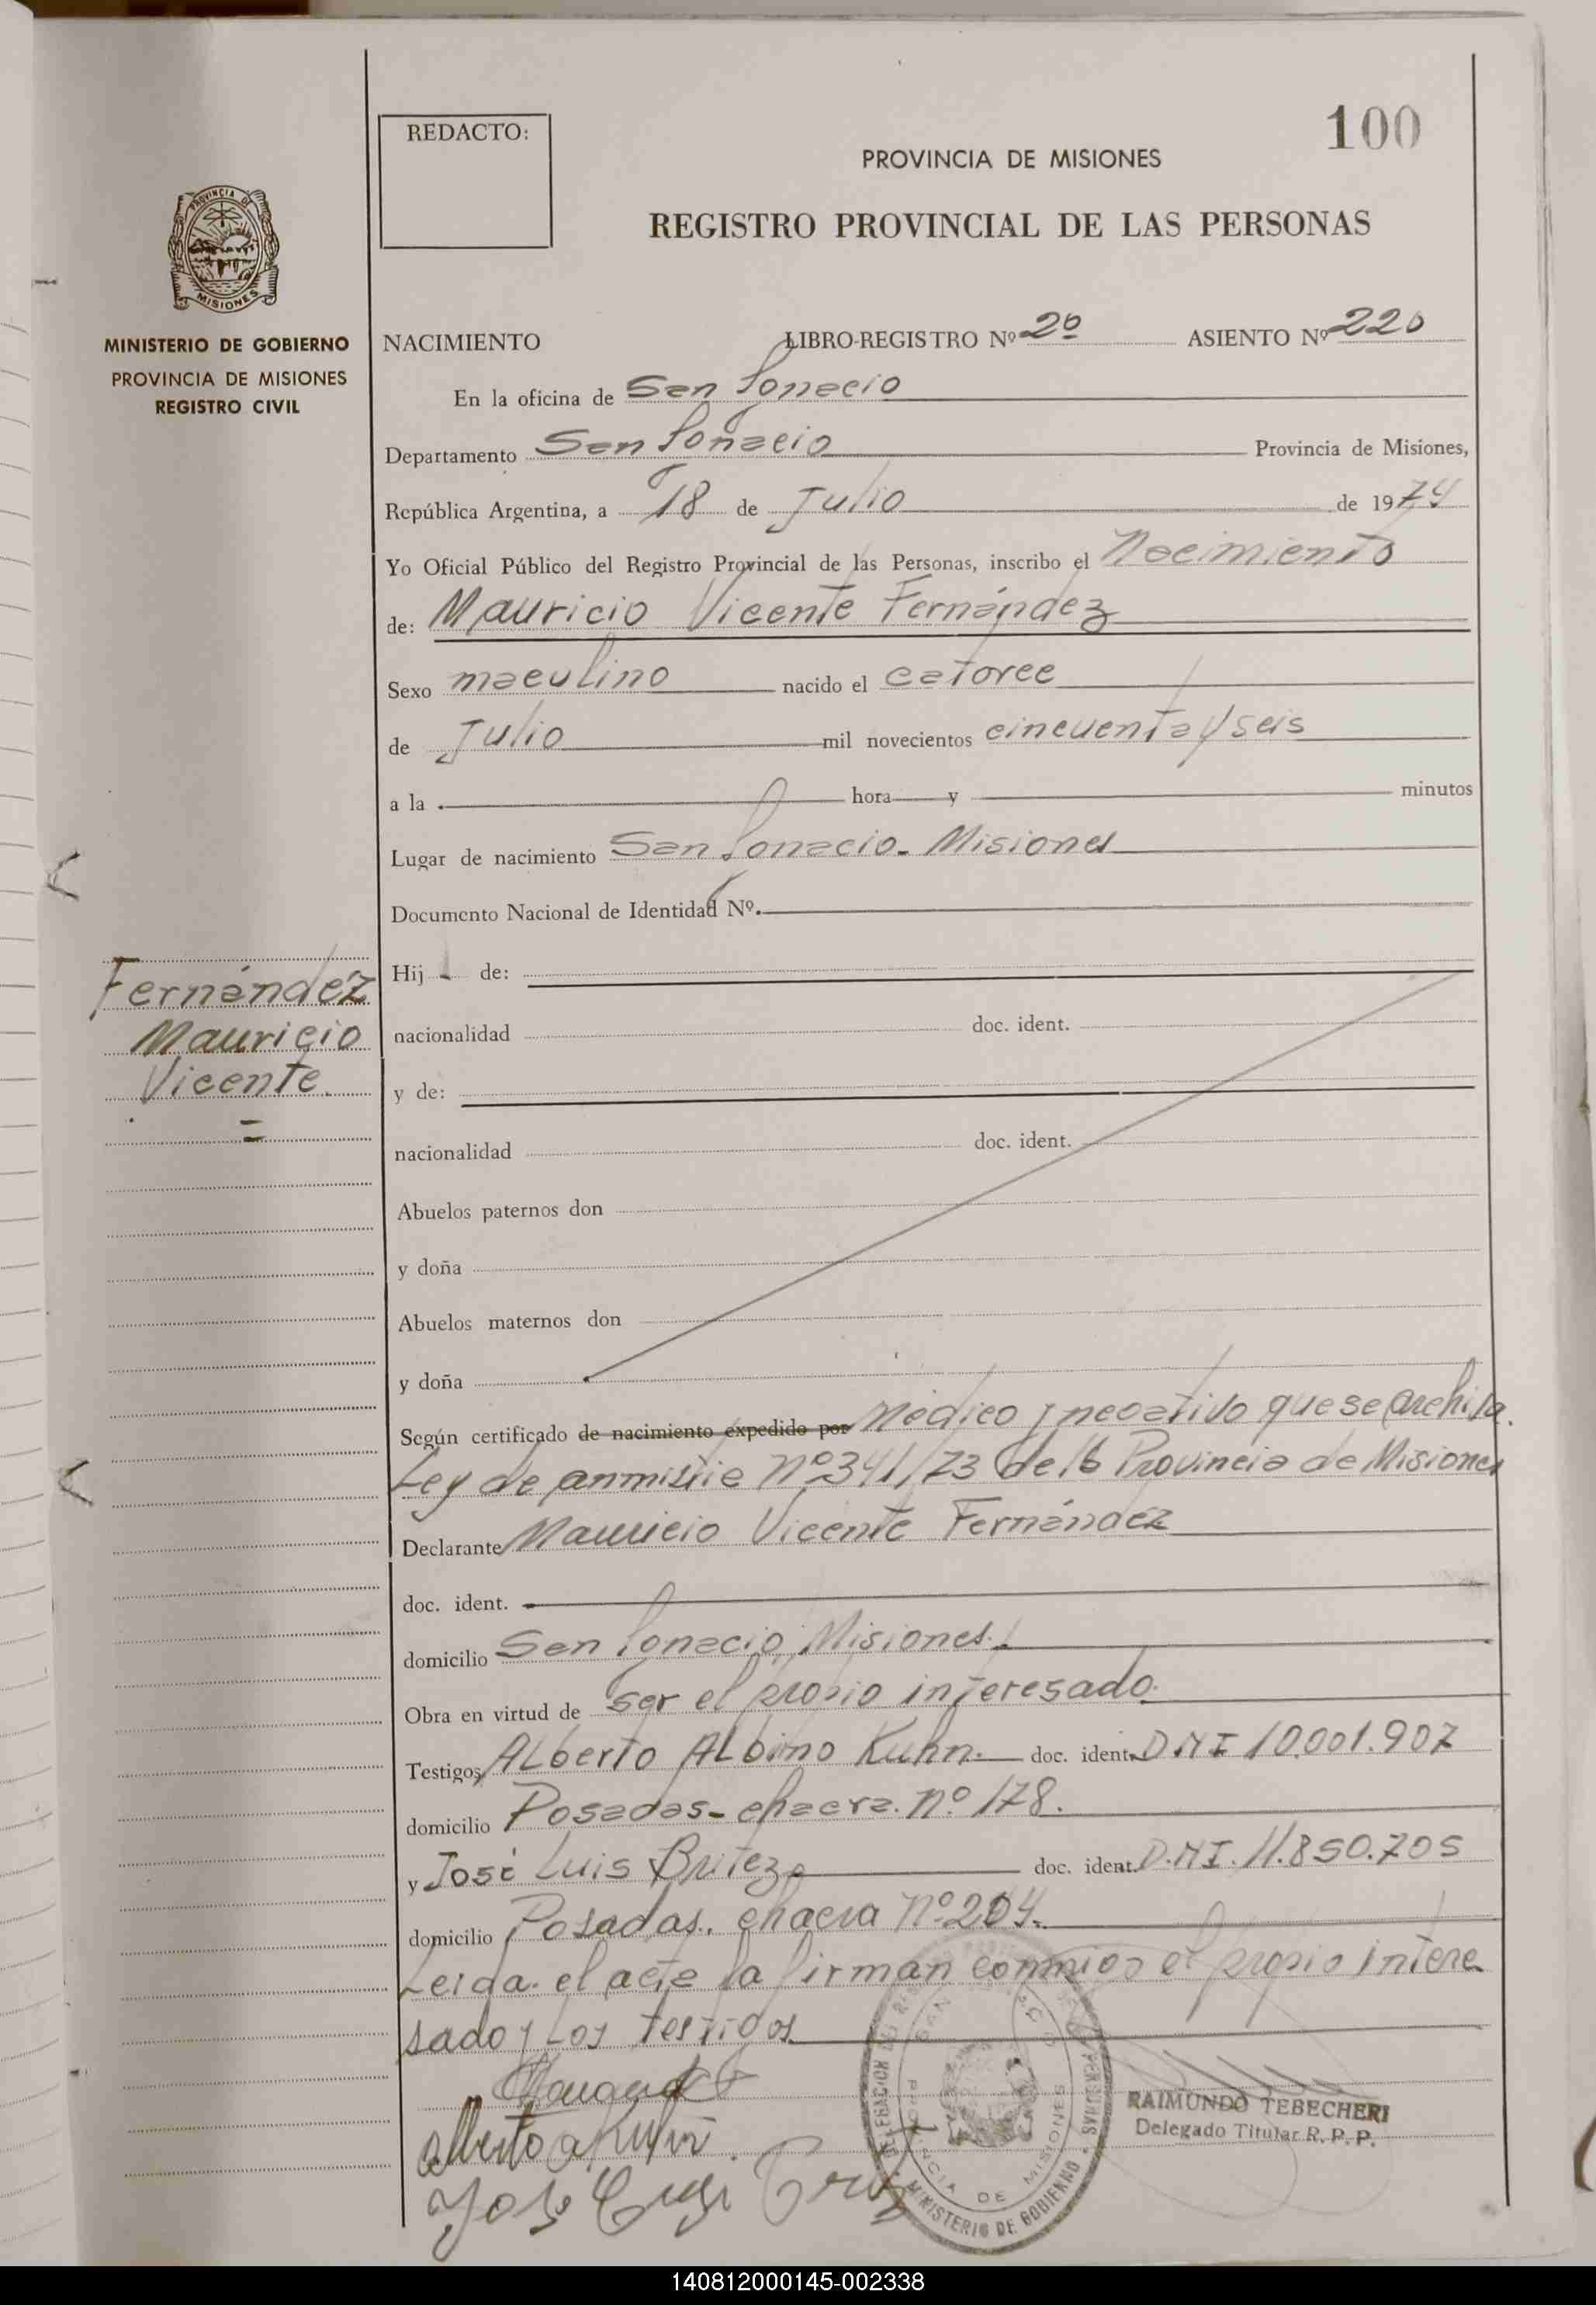 REDACTO:
100
PROVINCIA DE MISIONES
REGISTRO PROVINCIAL DE LAS PERSONAS
PROVINCIA DE
MISIONES
MINISTERIO DE GOBIERNO
PROVINCIA DE MISIONES
REGISTRO CIVIL
NACIMIENTO LIBRO-REGISTRO Nº 2º ASIENTO Nº 220
En la oficina de San Ignacio
Departamento San Ignacio Provincia de Misiones,
República Argentina, a 18 de Julio de 1974
Yo Oficial Público del Registro Provincial de las Personas, inscribo el Nacimiento
de: Mauricio Vicente Fernández
Sexo masculino nacido el catorce
de Julio mil novecientos cincuenta y seis
a la hora y minutos
Lugar de nacimiento San Ignacio - Misiones
Documento Nacional de Identidad Nº.
Fernández
Mauricio
Vicente.
Hij de:
nacionalidad doc. ident.
y de:
nacionalidad doc. ident.
Abuelos paternos don
y doña
Abuelos maternos don
y doña
Según certificado de nacimiento expedido por Médico y negativo que se archiva.
Ley de anmistia nº 341/73 de la Provincia de Misiones
Declarante Mauricio Vicente Fernández
doc. ident.
domicilio San Ignacio, Misiones.
Obra en virtud de ser el propio interesado.
Testigos Alberto Albino Kuhn. doc. ident. D.N.I 10.001.907
domicilio Posadas - chacra. nº 178.
y José Luis Britez doc. ident. D.N.I. 11.850.705
domicilio Posadas, chacra Nº 204.
Leida el acta la firman conmigo el propio intere
sado y los testigos
Alberto A Kuhn
José Luis
DELEGACION DEL REGISTRO PROVINCIAL DE LAS PERSONAS
SAN IGNACIO
PROVINCIA DE MISIONES
MINISTERIO DE GOBIERNO
RAIMUNDO TEBECHERI
Delegado Titular R. P. P.
140812000145-002338